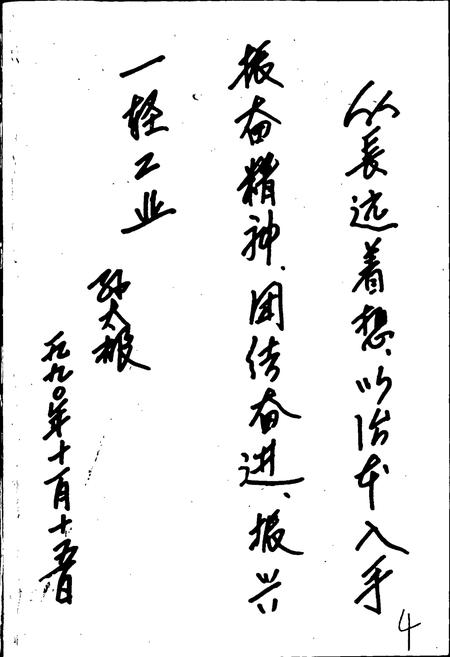 从長远着想、从治本入手
振奋精神、团结奋进、振兴
一轻工业
孙大根
一九九〇年十月十五日
4